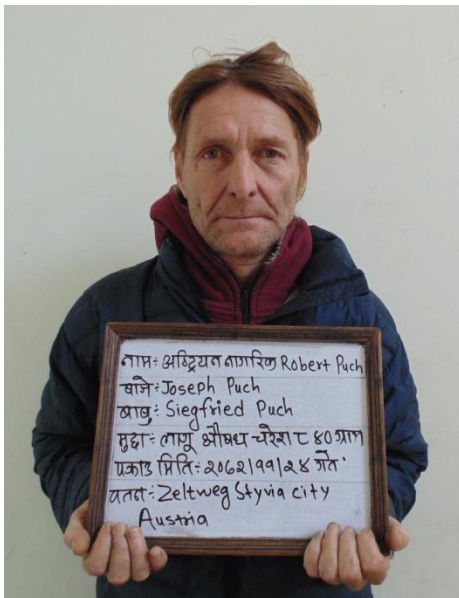 नाम:- अष्ट्रियन नागरिक Robert Puch
बाजे:- Joseph Puch
बाबु:- Siegfried Puch
मुद्दा:- लागू औषध चरेश ८४० ग्राम
पक्राउ मिति:- २०८२/११/२४ गते
वतन:- Zeltweg Styvia city
Austria